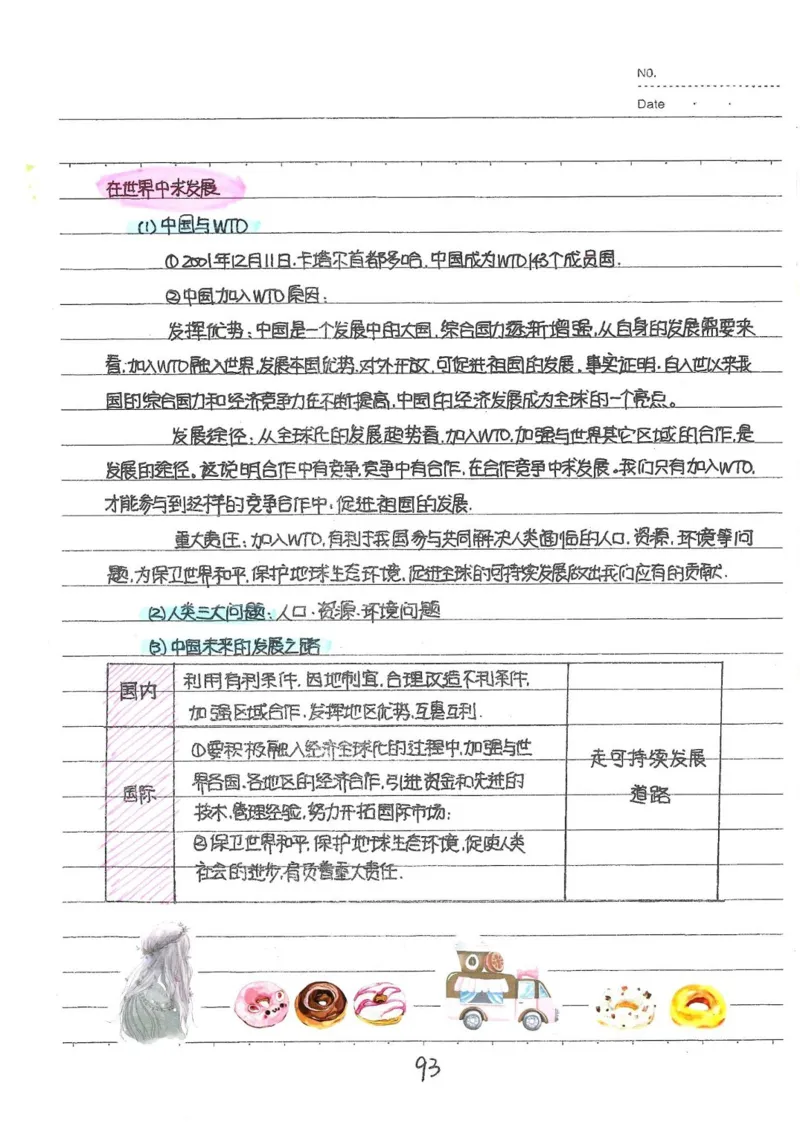 NO.
Date
在世界中求发展
(1)中国与WTO
①2001年12月11日.卡塔尔首都多哈.中国成为WTO143个成员国.
②中国加入WTO原因:
发挥优势:中国是一个发展中的大国,综合国力逐渐增强,从自身的发展需要来
看,加入WTO融入世界,发展本国优势,对外开放,可促进祖国的发展.事实证明,自入世以来我
国的综合国力和经济竞争力在不断提高,中国的经济发展成为全球的一个亮点。
发展途径:从全球化的发展趋势看,加入WTO,加强与世界其它区域的合作,是
发展的途径。这说明合作中有竞争,竞争中有合作,在合作竞争中求发展。我们只有加入WTO,
才能参与到这样的竞争合作中,促进祖国的发展.
重大责任:加入WTO,有利于我国参与共同解决人类面临的人口.资源.环境等问
题,为保卫世界和平,保护地球生态环境,促进全球的可持续发展做出我们应有的贡献.
(2)人类三大问题:人口.资源.环境问题
(3)中国未来的发展之路
国内
利用有利条件,因地制宜,合理改造不利条件,
加强区域合作,发挥地区优势,互惠互利.
国际
①要积极融入经济全球化的过程中,加强与世
界各国.各地区的经济合作,引进资金和先进的
技术.管理经验,努力开拓国际市场;
②保卫世界和平,保护地球生态环境,促使人类
社会的进步,肩负着重大责任.
走可持续发展
道路
93